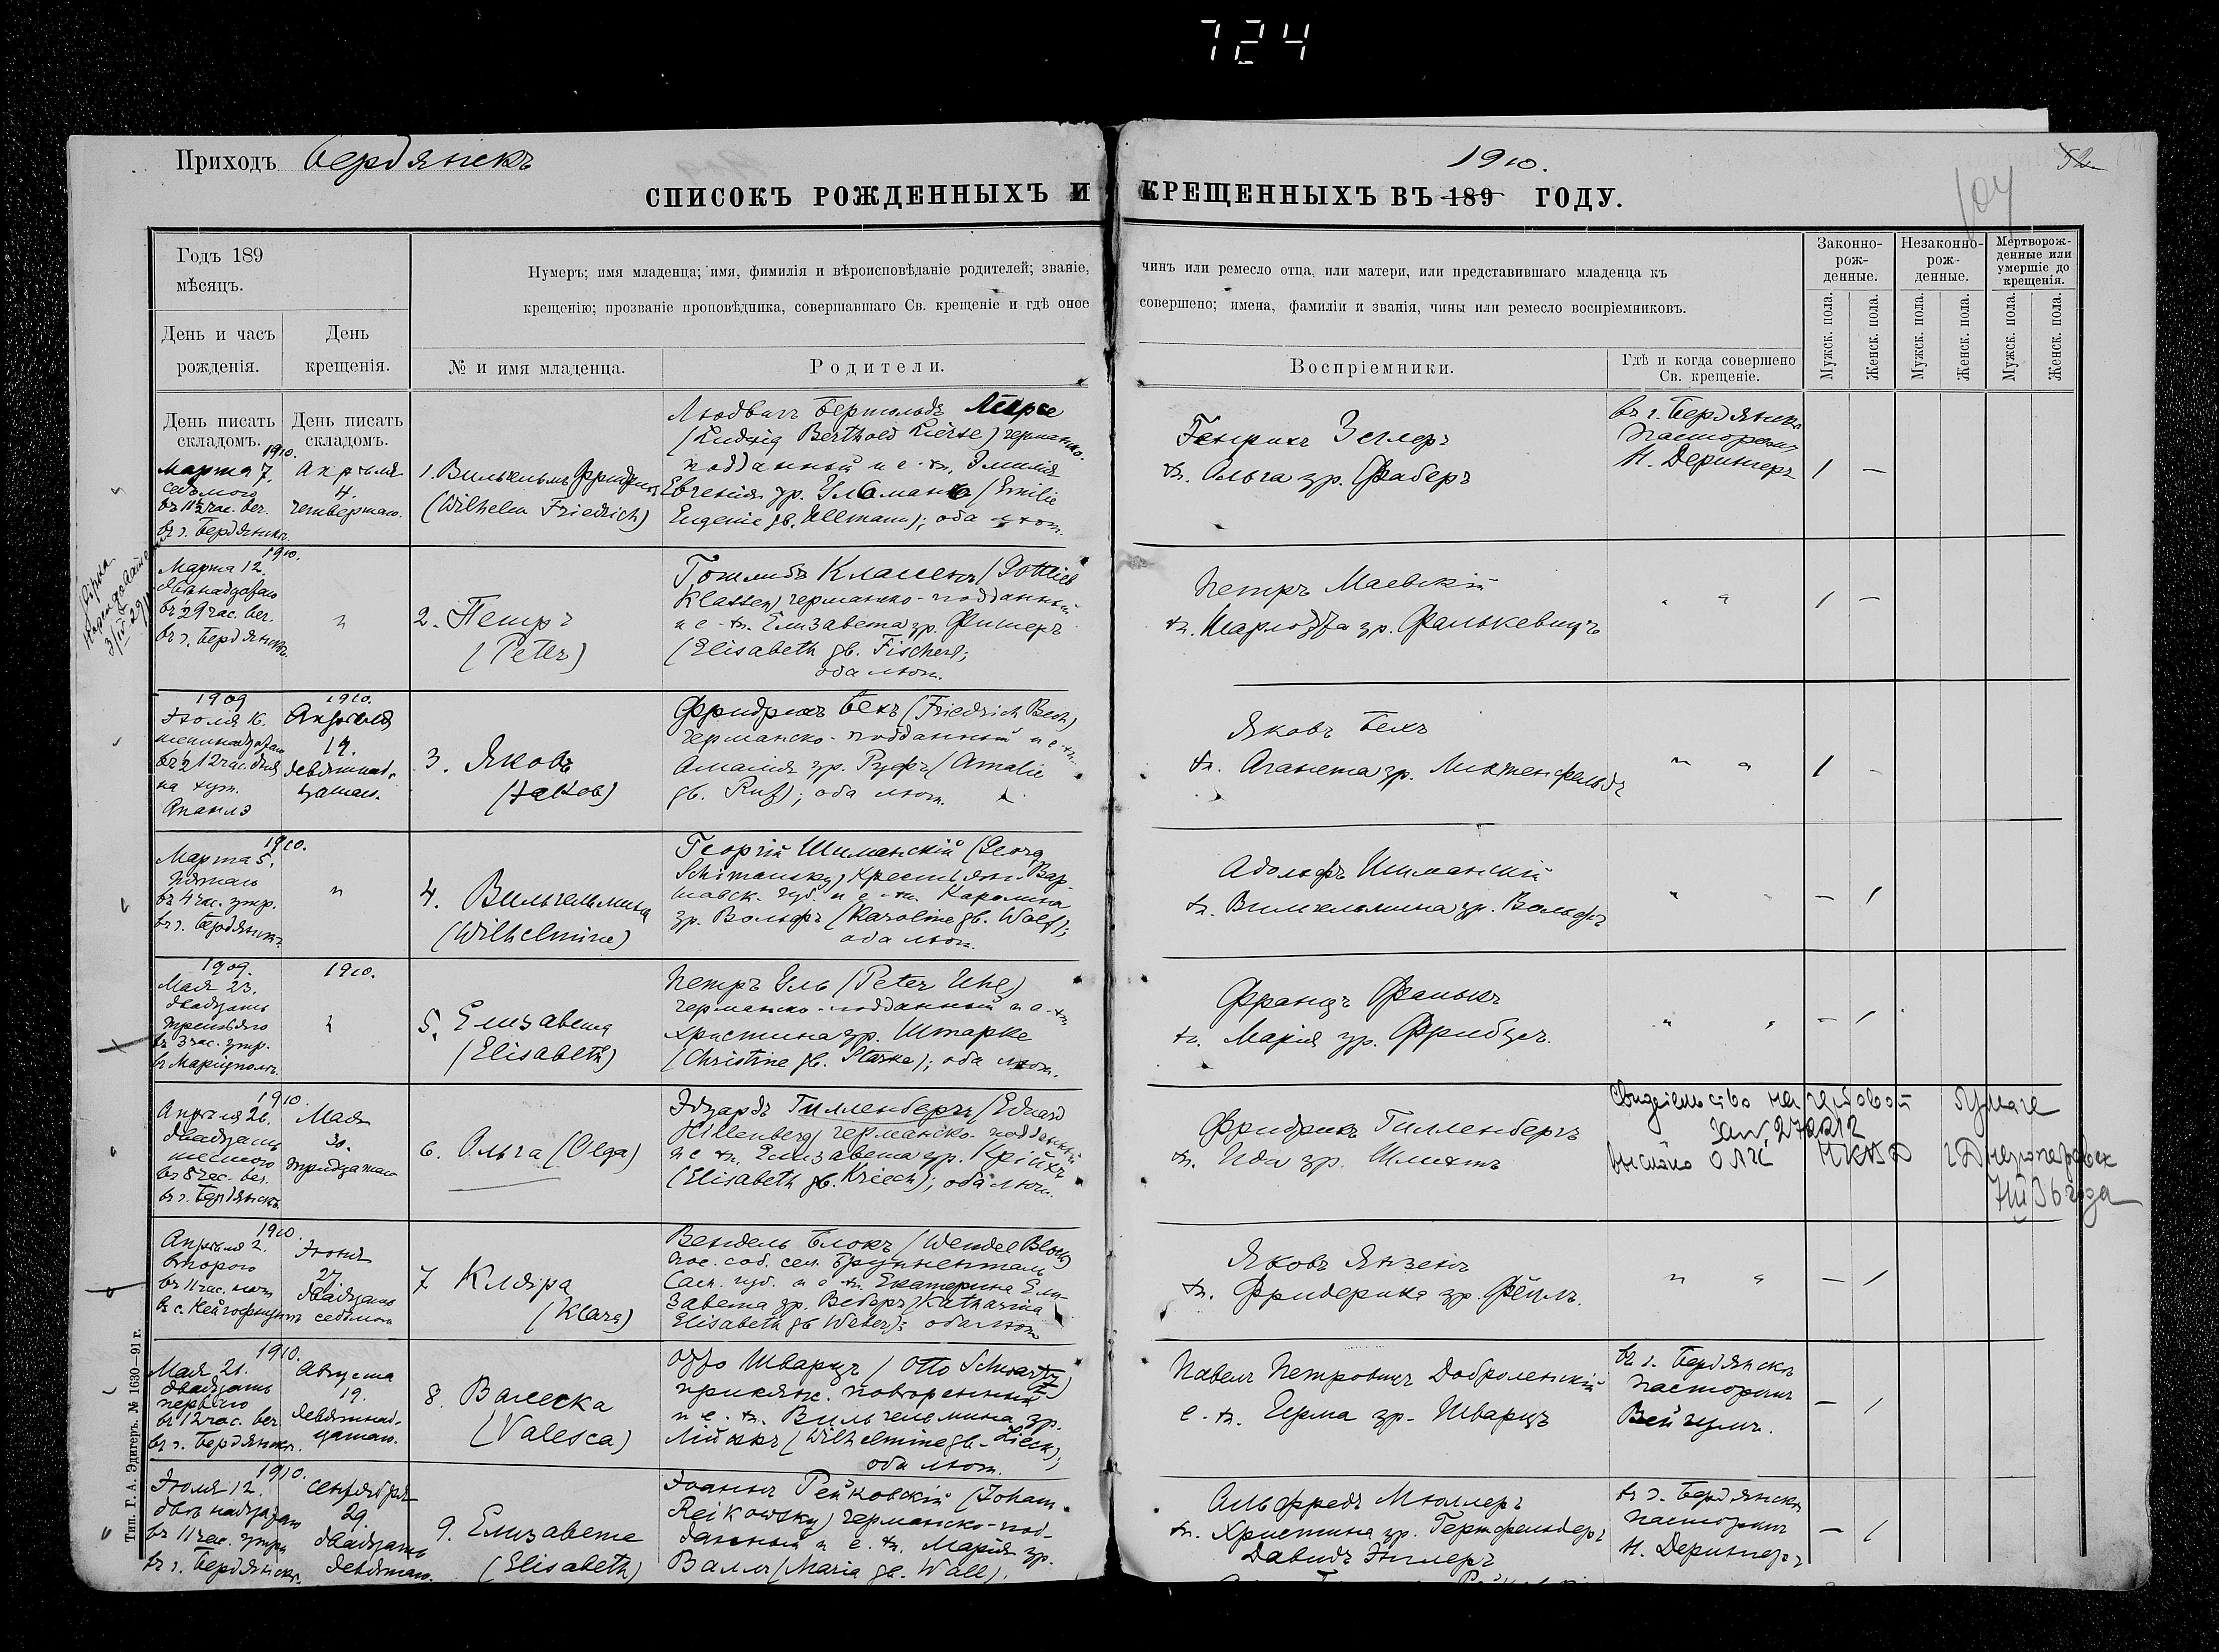 724
Приходъ Бердянскъ
1910.
52
104
СПИСОКЪ РОЖДЕННЫХЪ И КРЕЩЕННЫХЪ ВЪ 189 ГОДУ.
Годъ 189
мѣсяцъ.
День и часъ
рожденія.
День
крещенія.
Нумеръ; имя младенца; имя, фимилія и вѣроисповѣданіе родителей; званіе, чинъ или ремесло отца, или матери, или представившаго младенца къ
крещенію; прозваніе проповѣдника, совершавшаго Св. крещеніе и гдѣ оное совершено; имена, фамиліи и званія, чины или ремесло воспріемниковъ.
№ и имя младенца.
Родители.
Воспріемники.
Гдѣ и когда совершено
Св. крещеніе.
Законно-
рож-
денные.
Незаконно-
рож-
денные.
Мертворож-
денные или
умершіе до
крещенія.
Мужск. пола.
Женск. пола.
Мужск. пола.
Женск. пола.
Мужск. пола.
Женск. пола.
День писать
складомъ.
День писать
складомъ.
1910.
Марта 7,
седьмого
въ 11½ час. веч.
въ г. Бердянскѣ.
Апрѣля
4.
четвертаго.
1. Вильгельмъ Фридрихъ
(Wilhelm Friedrich)
Людвигъ Бертольдъ Лирсе
(Ludwig Berthold Lierse) германско-
подданный и е. ж. Эмилія
Евгенія ур. Ульманъ (Emilie
Eugenie gb. Ullmann); оба лют.
Генрихъ Зеллеръ
дѣв. Ольга ур. Фаберъ
въ г. Бердянскѣ
пасторомъ
Н. Дерингеръ
1 —
1910.
Марта 12.
двѣнадцатаго
въ ½9 час. веч.
въ г. Бердянскѣ.
"
2. Петръ
(Peter)
Готлибъ Классенъ (Gottlieb
Klassen) германско-подданный
и е. ж. Елизавета ур. Фишеръ
(Elisabeth gb. Fischer);
оба лют.
Петръ Маевскій
Шарлотта ур. Фалькевичъ
" "
1 —
1909
Іюля 16.
шестнадцатаго
въ ½12 час. дня
на хут.
1910.
Апрѣля
19.
девятнад-
цатаго.
3. Яковъ
(Jakob)
Фридрихъ Бехъ (Friedrich Bech)
германско-подданный и е. ж.
Амалія ур. Руфъ (Amalie
gb. Ruf); оба лют.
Яковъ Бехъ
Аганета ур. Лихтенфельдъ
" "
1 -
1910.
Марта 5.
пятаго
въ 4 час. утр.
въ г. Бердянскѣ
"
4. Вильгельмина
(Wilhelmine)
Георгій Шиманскій (Georg
Schimansky) крестьян. Вар-
шавск. губ. и е. ж. Каролина
ур. Вольфъ (Karoline gb. Wolf);
оба лют.
Адольфъ Шиманскій
Вильгельмина ур. Вольфъ
" "
— 1
1909.
Мая 23.
двадцать
третьяго
въ 3 час. утр.
въ Маріуполѣ.
1910.
"
5. Елизавета
(Elisabeth)
Петръ Уль (Peter Uhl)
германско-подданный и е. ж.
Христина ур. Штарке
(Christine gb. Starke); оба лют.
Францъ
Марія ур.
" "
— 1
1910.
Апрѣля 26.
двадцать
шестого
въ 8 час. веч.
въ г. Бердянскѣ.
Мая
30.
тридцатаго
6. Ольга (Olga)
Эдуардъ Гилленбергъ (Eduard
Hillenberg) германско-подданный
и е. ж. Елизавета ур. Крійхъ
(Elisabeth gb. Kriech); оба лют.
Фридрихъ Гилленбергъ
Ида ур. Шмидтъ
Свидетельство на гербовой бумаге
выслано НКВД г Днепропетровск
36 года
1910.
Апрѣля 2.
второго
въ 11 час. ночи
Іюня
27.
двадцать
седьмого
7 Клара
(Klara)
Вендель Блокъ (Wendel Block)
пос. соб. сел. Брунненталь
Сам. губ. и е. ж. Екатерина Ели-
завета ур. Веберъ (Katharina
Elisabeth gb Weber); оба лют
Яковъ Янзенъ
Фридерика ур.
" "
— 1
1910.
Мая 21.
двадцать
перваго
въ 12 час. веч
въ г. Бердянскѣ.
Августа
19.
девятнад-
цатаго.
8. Валеска
(Valesca)
Отто Шварцъ (Otto Schwartz)
и е. ж. Вильгельмина ур.
(Wilhelmine gb. Lieck);
оба лют.
Павелъ Петровичъ Доброленскій
е. ж. Ирма ур. Шварцъ
въ г. Бердянскѣ
пасторомъ
— 1
1910.
Іюля 12.
двѣнадцатаго
въ 11 час. утра
въ г. Бердянскѣ.
Сентября
29.
двадцать
девятаго.
9. Елизавета
(Elisabeth)
Іоганнъ Рейковскій (Johann
Reikowsky) германско-под-
данный и е. ж. Марія ур.
Валлъ (Maria gb. Wall).
Альфредъ Мюллеръ
Христина ур.
Давидъ
въ г. Бердянскѣ
пасторомъ
Н. Дерингеръ
— 1
Тип. Г. А. Эдигеръ. № 1630—91 г.